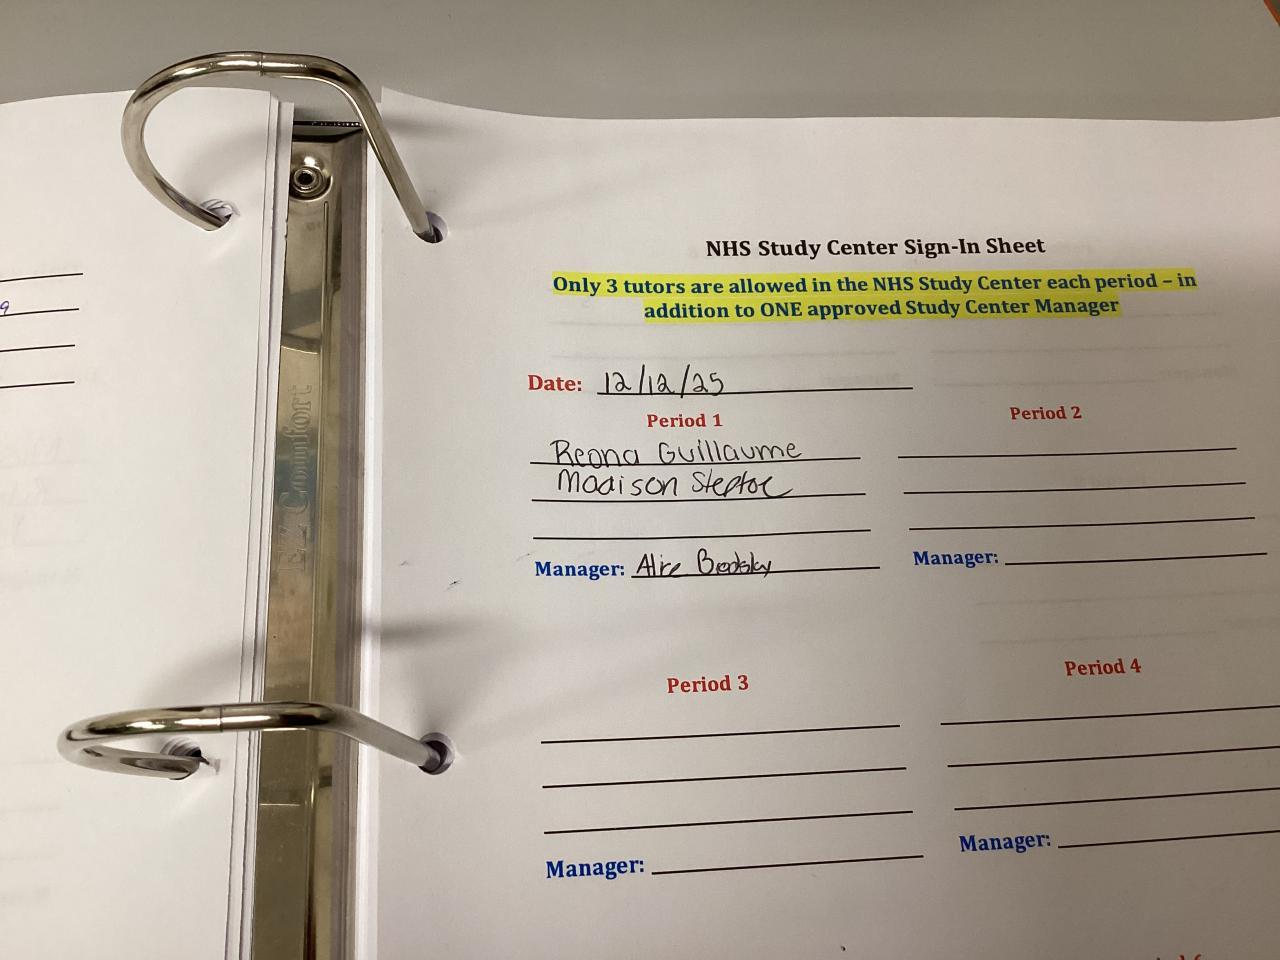 NHS Study Center Sign-In Sheet
Only 3 tutors are allowed in the NHS Study Center each period – in
addition to ONE approved Study Center Manager
Date: 12/12/25
Period 1
Reona Guillaume
Madison Steptoe
Manager: Alice Brodsky
Period 2
Manager:
Period 3
Manager:
Period 4
Manager:
EZ Comfort
9